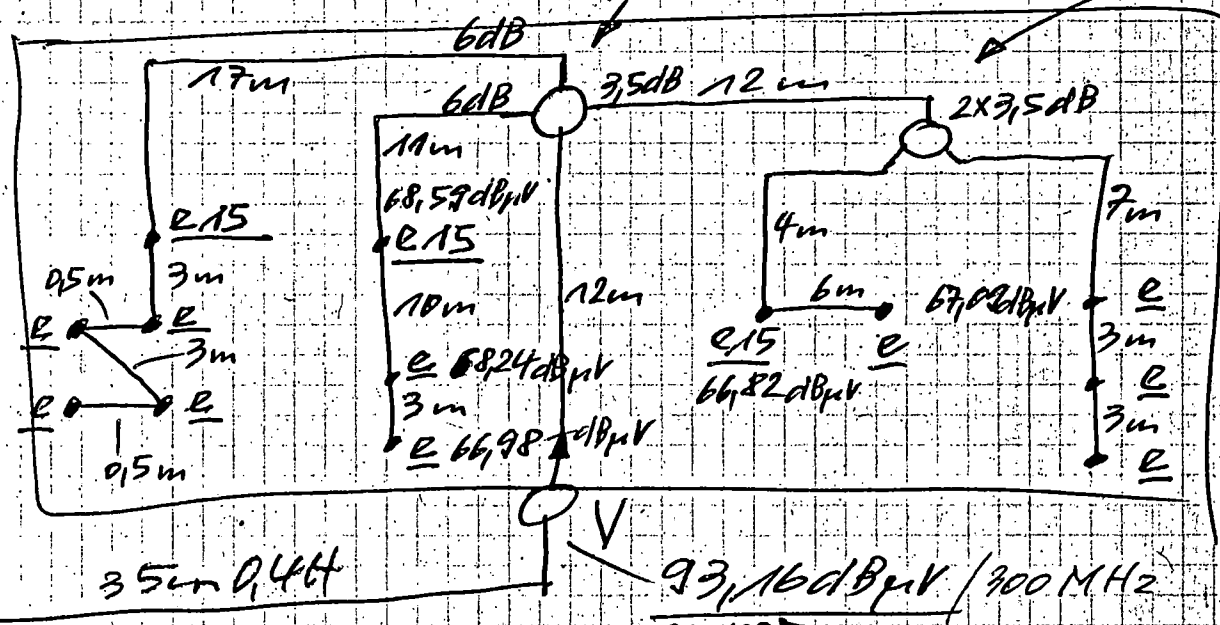 6dB
17m
6dB
3,5dB 12m
2x3,5dB
11m
68,59dBµV
e15
e15
7m
4m
3m
0,5m
10m
12m
6m
67,09dBµV e
e
e
3m
e 68,24dBµV
e15
e
3m
66,82dBµV
e
e
e
3m
e 66,98 dBµV
3m
0,5m
e
V
35m 0,4H
93,16dBµV/300MHz